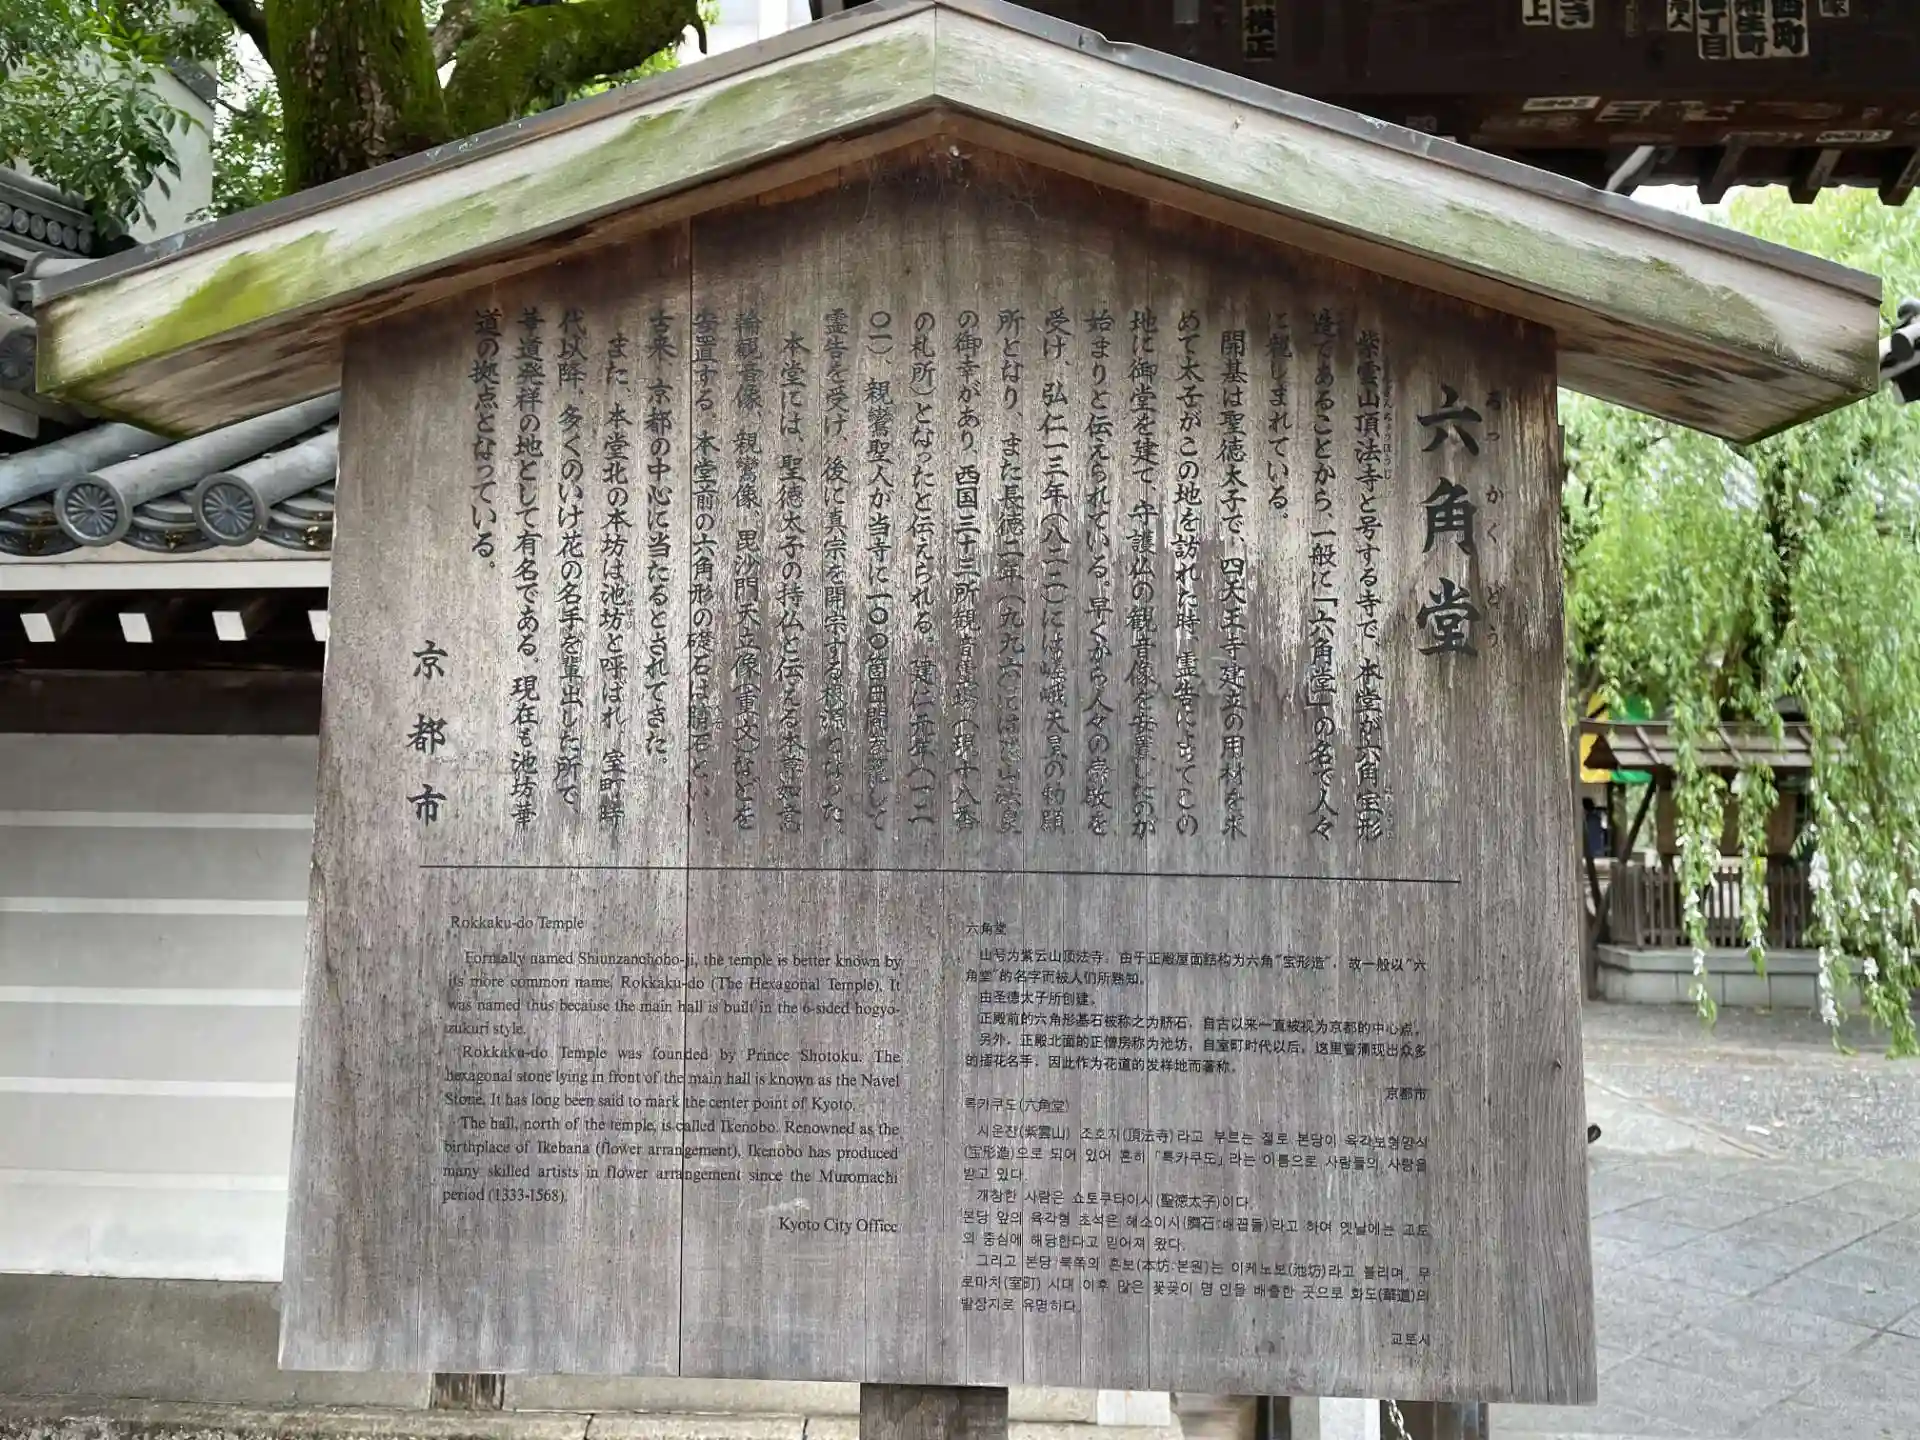 六角堂
ろっかくどう
紫雲山頂法寺と号する寺で、本堂が六角宝形
造であることから、一般に「六角堂」の名で人々
に親しまれている。
開基は聖徳太子で、四天王寺建立の用材を求
めて太子がこの地を訪れた時、霊告によってこの
地に御堂を建て、守護仏の観音像を安置したのが
始まりと伝えられている。早くから人々の崇敬を
受け、弘仁一三年(八二二)には嵯峨天皇の勅願
所となり、また長徳二年(九九六)には花山法皇
の御幸があり、西国三十三所観音霊場(現十八番
の札所)となったと伝えられる。建仁元年(一二
〇一)、親鸞聖人が当寺に一〇〇箇日間参籠して
霊告を受け、後に真宗を開宗する根源となった。
本堂には、聖徳太子の持仏と伝える本尊如意
輪観音像、親鸞像、毘沙門天立像(重文)などを
安置する。本堂前の六角形の礎石は臍石といい、
古来、京都の中心に当たるとされてきた。
また、本堂北の本坊は池坊と呼ばれ、室町時
代以降、多くのいけ花の名手を輩出した所で、
華道発祥の地として有名である。現在も池坊華
道の拠点となっている。
京都市
Rokkaku-do Temple
Formally named Shiunzanchoho-ji, the temple is better known by
its more common name, Rokkaku-do (The Hexagonal Temple). It
was named thus because the main hall is built in the 6-sided hogyo-
zukuri style.
Rokkaku-do Temple was founded by Prince Shotoku. The
hexagonal stone lying in front of the main hall is known as the Navel
Stone. It has long been said to mark the center point of Kyoto.
The hall, north of the temple, is called Ikenobo. Renowned as the
birthplace of Ikebana (flower arrangement), Ikenobo has produced
many skilled artists in flower arrangement since the Muromachi
period (1333-1568).
Kyoto City Office
六角堂
山号为紫云山顶法寺。由于正殿屋面结构为六角“宝形造”，故一般以“六
角堂”的名字而被人们所熟知。
由圣德太子所创建。
正殿前的六角形基石被称之为脐石，自古以来一直被视为京都的中心点。
另外，正殿北面的正僧房称为池坊，自室町时代以后，这里曾涌现出众多
的插花名手，因此作为花道的发祥地而著称。
京都市
록카쿠도(六角堂)
시운잔(紫雲山) 조호지(頂法寺)라고 부르는 절로 본당이 육각보형양식
(宝形造)으로 되어 있어 흔히 「록카쿠도」라는 이름으로 사람들의 사랑을
받고 있다.
개창한 사람은 쇼토쿠타이시(聖徳太子)이다.
본당 앞의 육각형 초석은 헤소이시(臍石:배꼽돌)라고 하여 옛날에는 교토
의 중심에 해당한다고 믿어져 왔다.
그리고 본당 북쪽의 혼보(本坊:본원)는 이케노보(池坊)라고 불리며, 무
로마치(室町) 시대 이후 많은 꽃꽂이 명인을 배출한 곳으로 화도(華道)의
발상지로 유명하다.
교토시